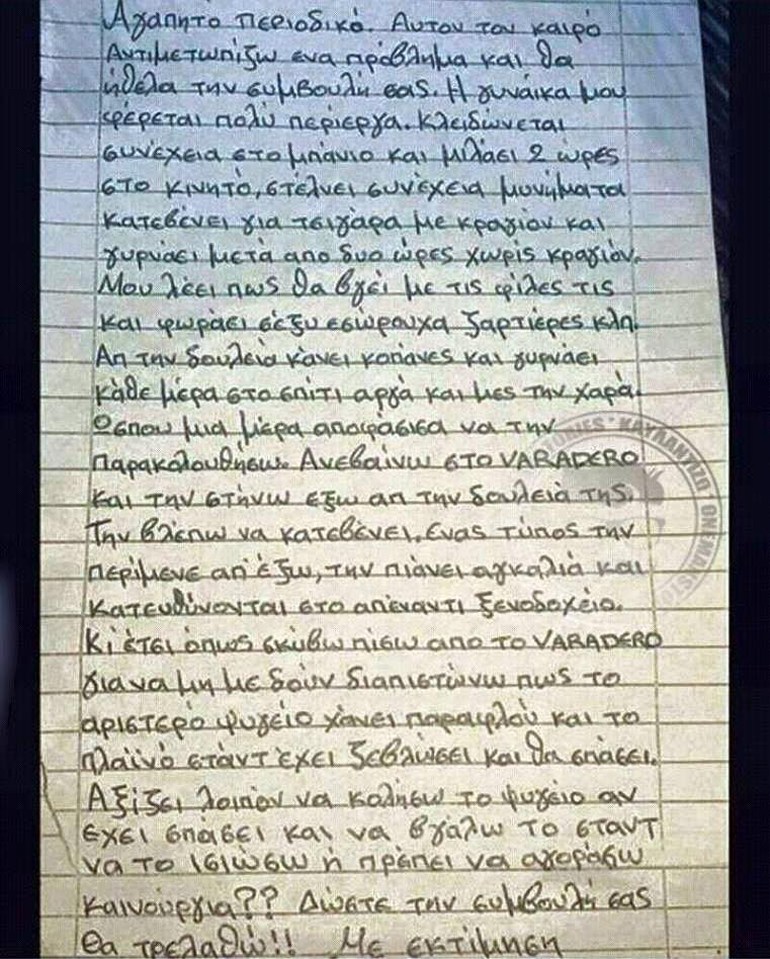 Αγαπητό περιοδικό. Αυτόν τον καιρό
Αντιμετωπίζω ένα πρόβλημα και θα
ήθελα την συμβουλή σας. Η γυνάικα μου
φέρεται πολύ περίεργα. Κλειδώνεται
συνέχεια στο μπάνιο και μιλάει 2 ώρες
στο κινητό, στέλνει συνέχεια μυνήματα
κατεβένει για τσιγάρα με κραγιόν και
γυρνάει μετά απο δυο ώρες χωρίς κραγιόν.
Μου λέει πως θα βγεί με τις φίλες τις
και φωράει σέξυ εσώρουχα ζαρτιέρες κλπ.
Απ την δουλειά κάνει κοπάνες και γυρνάει
κάθε μέρα στο σπίτι αργά και μες την χαρά.
Ώσπου μια μέρα αποφάσισα να την
Παρακολουθήσω. Ανεβαίνω στο VARADERO
και την στήνω έξω απ την δουλειά της.
Την βλέπω να κατεβένει. Ένας τύπος την
περίμενε απ' έξω, την πιάνει αγκαλιά και
κατευθύνονται στο απέναντι ξενοδοχείο.
Κι έτσι όπως σκύβω πίσω απο το VARADERO
για να μη με δούν διαπιστώνω πως το
αριστερό ψυγείο χάνει παραφλού και το
πλαϊνό στάντ έχει ξεβιώσει και θα σπάσει.
Αξίζει λοιπόν να κολήσω το ψυγείο αν
έχει σπάσει και να βγάλω το σταντ
να το ισιώσω ή πρέπει να αγοράσω
καινούργια?? Δώστε την συμβουλή σας
θα τρελαθώ!! Με εκτίμηση